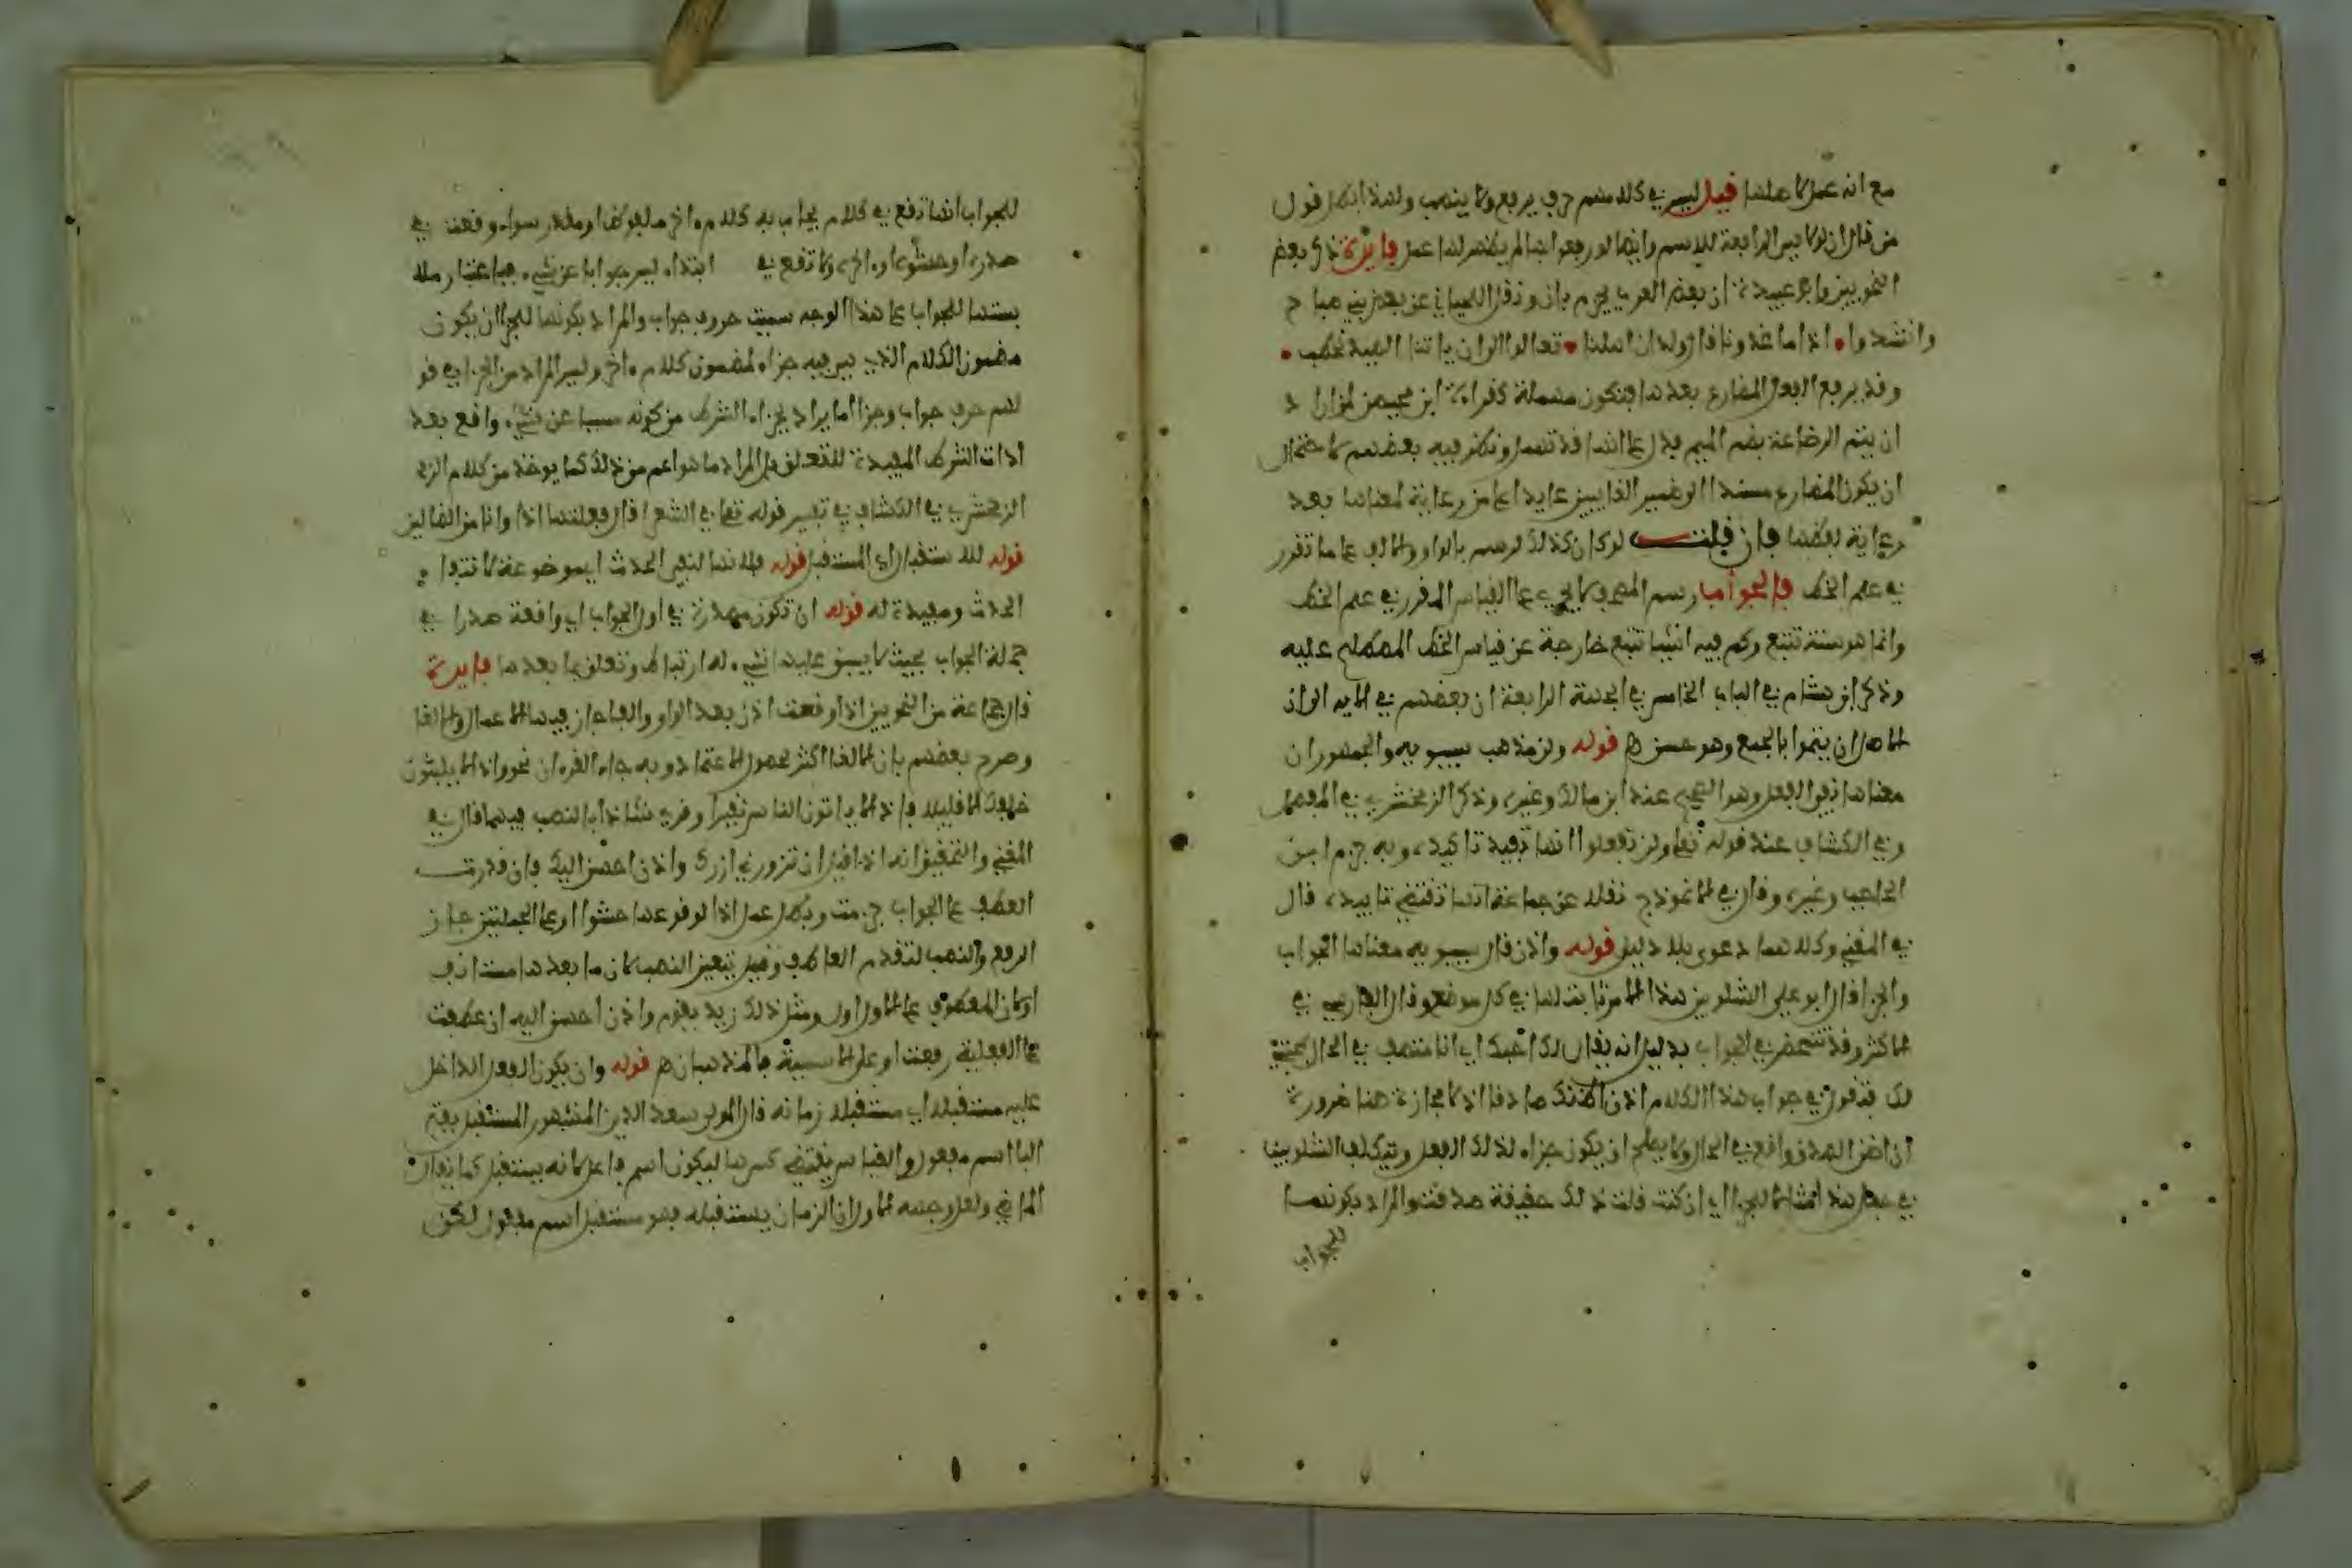 مع انه عمل كاملها فيل ليس في كلامهم حرف يرفع ولا ينصب ولهذا بطل قول
من قال ان لولا هي الرافعة للاسم وايضا لو رفعوا بها لم يظهر لها عمل فايدة ذكر بعض
النحويين وابو عبيدة ان بعض العرب يجزم بان ونقل اللحياني عن بعض بني صباح
وانشدوا اذا ما غدونا قال ولدان اهلنا تعالوا الى ان ياتنا الصيد نحطب
وقد يرفع الفعل المضارع بعدها فتكون مهملة كقراءة ابن محيصن لمن اراد
ان يتم الرضاعة بضم الميم فدل على انها قد تهمل ونظر فيه بعضهم لاحتمال
ان يكون المضارع مسندا الى ضمير الغايبين عايدا على من رعاية لمعناها بعد
رعاية لفظها فان قلت لو كان كذلك لرسم بالواو والالف على ما تقرر
في علم الخط فالجواب رسم المصحف لا يجري على القياس المقرر في علم الخط
وانما هو سنة تتبع وكم فيه اشيا تتبع خارجة عن قياس الخط المصطلح عليه
وذكر ابن هشام في الباب الخامس في الجهة الرابعة ان بعضهم في الاية ان
الاصل ان يتموا بالجمع وهو حسن اهـ قوله ولن مذهب سيبويه والجمهور ان
معناها نفي الفعل وهو الصحيح عند ابن مالك وغيره وذكر الزمخشري في المفصل
وفي الكشاف عند قوله تعلى ولن تفعلوا انها تفيد تاكيده وبه جزم ابن
الحاجب وغيره وقال في الانموذج نقله عن جماعة انها تقتضي تابيده قال
في المغني وكلاهما دعوى بلا دليل قوله واذن قال سيبويه معناها الجواب
والجزا قال ابو علي الشلوبين هذا الامر ثابت لها في كل موضع وقال الفارسي في
الاكثر وقد تتمحض في الجواب بدليل انه يقال لك احبك اي انا متصف في الحال بمحبتي
لك فتقول في جواب هذا الكلام اذن اظنك صادقا اذ لا مجازاة هنا ضرورة
ان ظن الصدق واقع في الحال ولا يصلح ان يكون جزاء لذلك الفعل وتكلف الشلوبين
في جعل هذا مثالا للجزا اي ان كنت قلت ذلك حقيقة صدقتك والمراد بكونهما
للجواب
للجواب انها تقع في كلام يجاب به كلام ءاخر ملفوظ او مقدر سواء وقعت في
صدره او حشوه او ءاخره ولا تقع في ابتداء ليس جوابا عن شيء فباعتبار ملا
بستها للجواب على هذا الوجه سميت حرف جواب والمراد بكونها للجزا ان يكون
مضمون الكلام الذي هي فيه جزاء لمضمون كلام ءاخر وليس المراد من الجزا في قو
لهم حرف جواب وجزا ما يراد بجزاء الشرط من كونه مسببا عن شيء واقع بعد
ادات الشرط المفيدة للتعلق بل المراد ما هو اعم من ذلك كما يوخذ من كلام الز
الزمخشري في الكشاف في تفسير قوله تعلى في الشعرا قال فعلتها اذا وانا من الضالين
قوله للاستقبال اي المستقبل قوله فلانها لنفي الحدث اي موضوعة لانتفا
الحدث ومفيدة له قوله ان تكون مصدرة في اول الجواب اي واقعة صدرا في
جملة الجواب بحيث لا يسبق عليها شيء له ارتباط وتعلق بما بعدها فايدة
قال جماعة من النحويين اذا وقعت اذن بعد الواو والفا جاز فيها الاعمال والالغا
وصرح بعضهم بان الالغا اكثر لحصول الاعتماد وبه جاء القرءان نحو واذا لا يلبثون
خلفك الا قليلا فاذا لا ياتون الناس نقيرا وقرئ شاذا بالنصب فيهما قال في
المغني والتحقيق انه اذا قيل ان تزورني ازرك واذن احسن اليك فان قدرت
العطف على الجواب جزمت وبطل عمل اذا لوقوعها حشوا او على الجملتين جاز
الرفع والنصب لتقدم العاطف وقيل يتعين النصب لان ما بعدها مستانف
او لان المعطوف على الاول اول ومثل ذلك زيد يقوم واذن احسن اليه ان عطفت
على الفعلية رفعت او على الاسمية فالمذهبان اهـ قوله وان يكون الفعل الداخل
عليه مستقبلا اي مستقبلا زمانه قال المولى سعد الدين المشهور المستقبل بفتح
البا اسم مفعول والقياس يقتضي كسرها ليكون اسم فاعل لانه يستقبل كما يقال
الماضي ولعل وجه الاول ان الزمان يستقبله فهو مستقبل اسم مفعول لكن